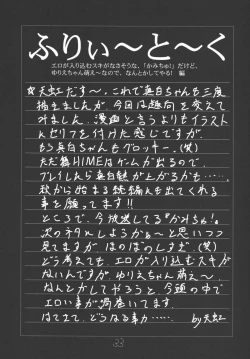 ふりぃ～と～く
エロが入り込むスキがなさそうな、「かみちゅ!」だけど、
ゆりえちゃん萌え～なので、なんとかしてやる! 編
☆天虹だす～。これで真白ちゃんも三度
描きましたが、今回は趣向を変えて
みました。漫画と言うよりもイラスト
にセリフを付けた感じですが
もう真白ちゃんもグロッキー。(笑)
ただ舞HIMEはゲームが出るので、
プレイしたら真白魅が上がるかも……。
秋から始まる続編にも出てくれる
事を願ってます!!
ところで、今放送してる「かみちゅ」
次のネタにしようかな～と思いつつ
見てますが、ほのぼのしすぎ。(笑)
どう考えても、エロが入り込むスキが
ないんですが、ゆりえちゃん萌え～。
なんとかしてやろうと、今頭の中で
エロい事が渦巻いてます。
はてさて、どうなる事か……。
by 天虹
33